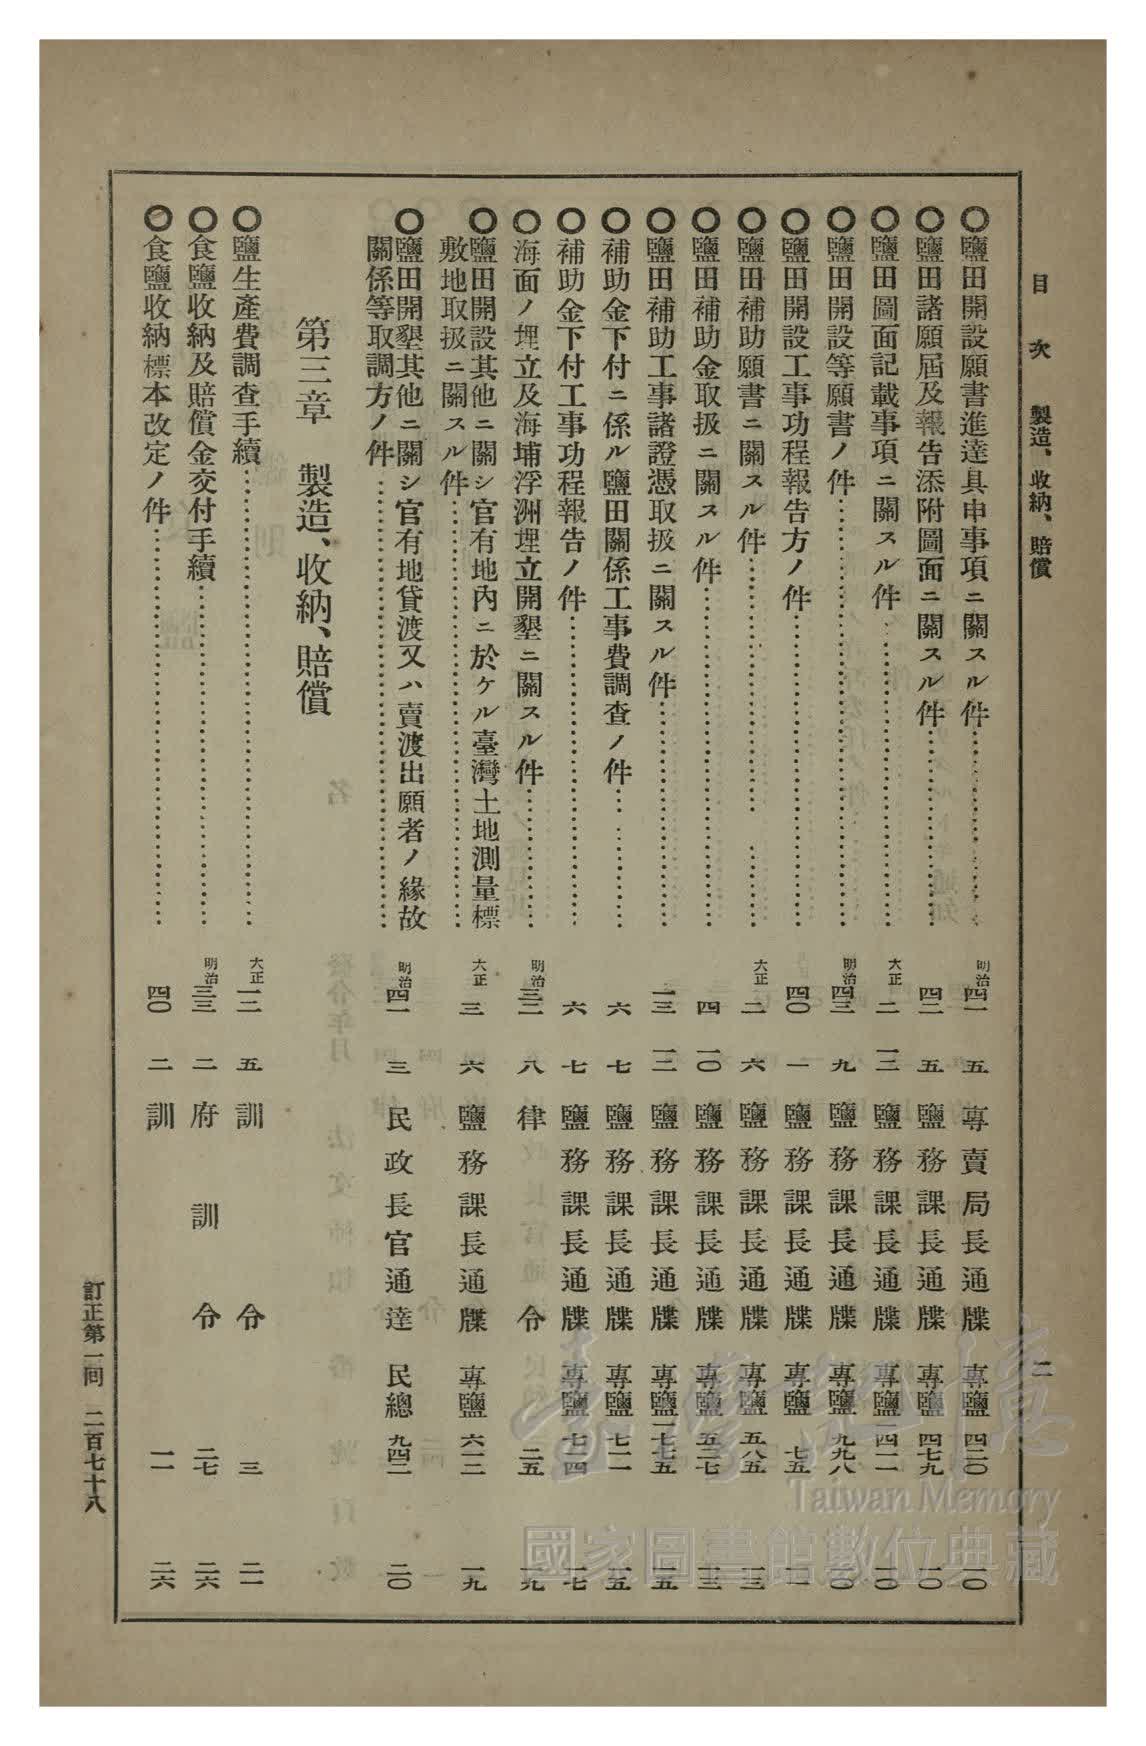 目次 製造、收納、賠償 二
〇鹽田開設願書進達具申事項ニ關スル件 明治 四一 五 專賣局長通牒 專鹽 四二〇 一〇
〇鹽田諸願屆及報告添附圖面ニ關スル件 四二 五 鹽務課長通牒 專鹽 四七九 一〇
〇鹽田圖面記載事項ニ關スル件 大正 二 一二 鹽務課長通牒 專鹽 一〇
〇鹽田開設等願書ノ件 明治 四三 九 鹽務課長通牒 專鹽 九九八 一〇
〇鹽田開設工事功程報告方ノ件 四〇 一 鹽務課長通牒 專鹽 七五 一一
〇鹽田補助願書ニ關スル件 大正 二 六 鹽務課長通牒 專鹽 五八五 一三
〇鹽田補助金取扱ニ關スル件 四 一〇 鹽務課長通牒 專鹽 五二七 一三
〇鹽田補助工事諸證憑取扱ニ關スル件 一三 一二 鹽務課長通牒 專鹽 一七七五 一五
〇補助金下付ニ係ル鹽田關係工事費調查ノ件 六 七 鹽務課長通牒 專鹽 七一一 一五
〇補助金下付工事功程報告ノ件 六 七 鹽務課長通牒 專鹽 七一四 一七
〇海面ノ埋立及海埔浮洲埋立開墾ニ關スル件 明治 三二 八 律令 二五 一九
〇鹽田開設其他ニ關シ官有地內ニ於ケル臺灣土地測量標
敷地取扱ニ關スル件 大正 三 六 鹽務課長通牒 專鹽 六一二 一九
〇鹽田開墾其他ニ關シ官有地貸渡又ハ賣渡出願者ノ緣故
關係等取調方ノ件 明治 四一 三 民政長官通達 民總 九四二 二〇
第三章 製造、收納、賠償
〇鹽生產費調查手續 大正 一二 五 訓令 三 二一
〇食鹽收納及賠償金交付手續 明治 三三 二 府訓令 二七 二六
〇食鹽收納標本改定ノ件 四〇 二 訓 一一 二六
訂正第一回 二百七十八
臺灣記憶
Taiwan Memory
國家圖書館數位典藏